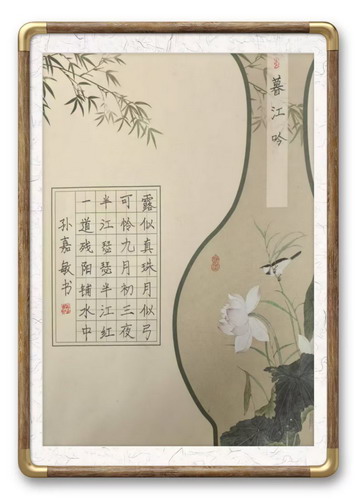 暮江吟
露似真珠月似弓
可怜九月初三夜
半江瑟瑟半江紅
一道残阳铺水中
孙嘉敏书